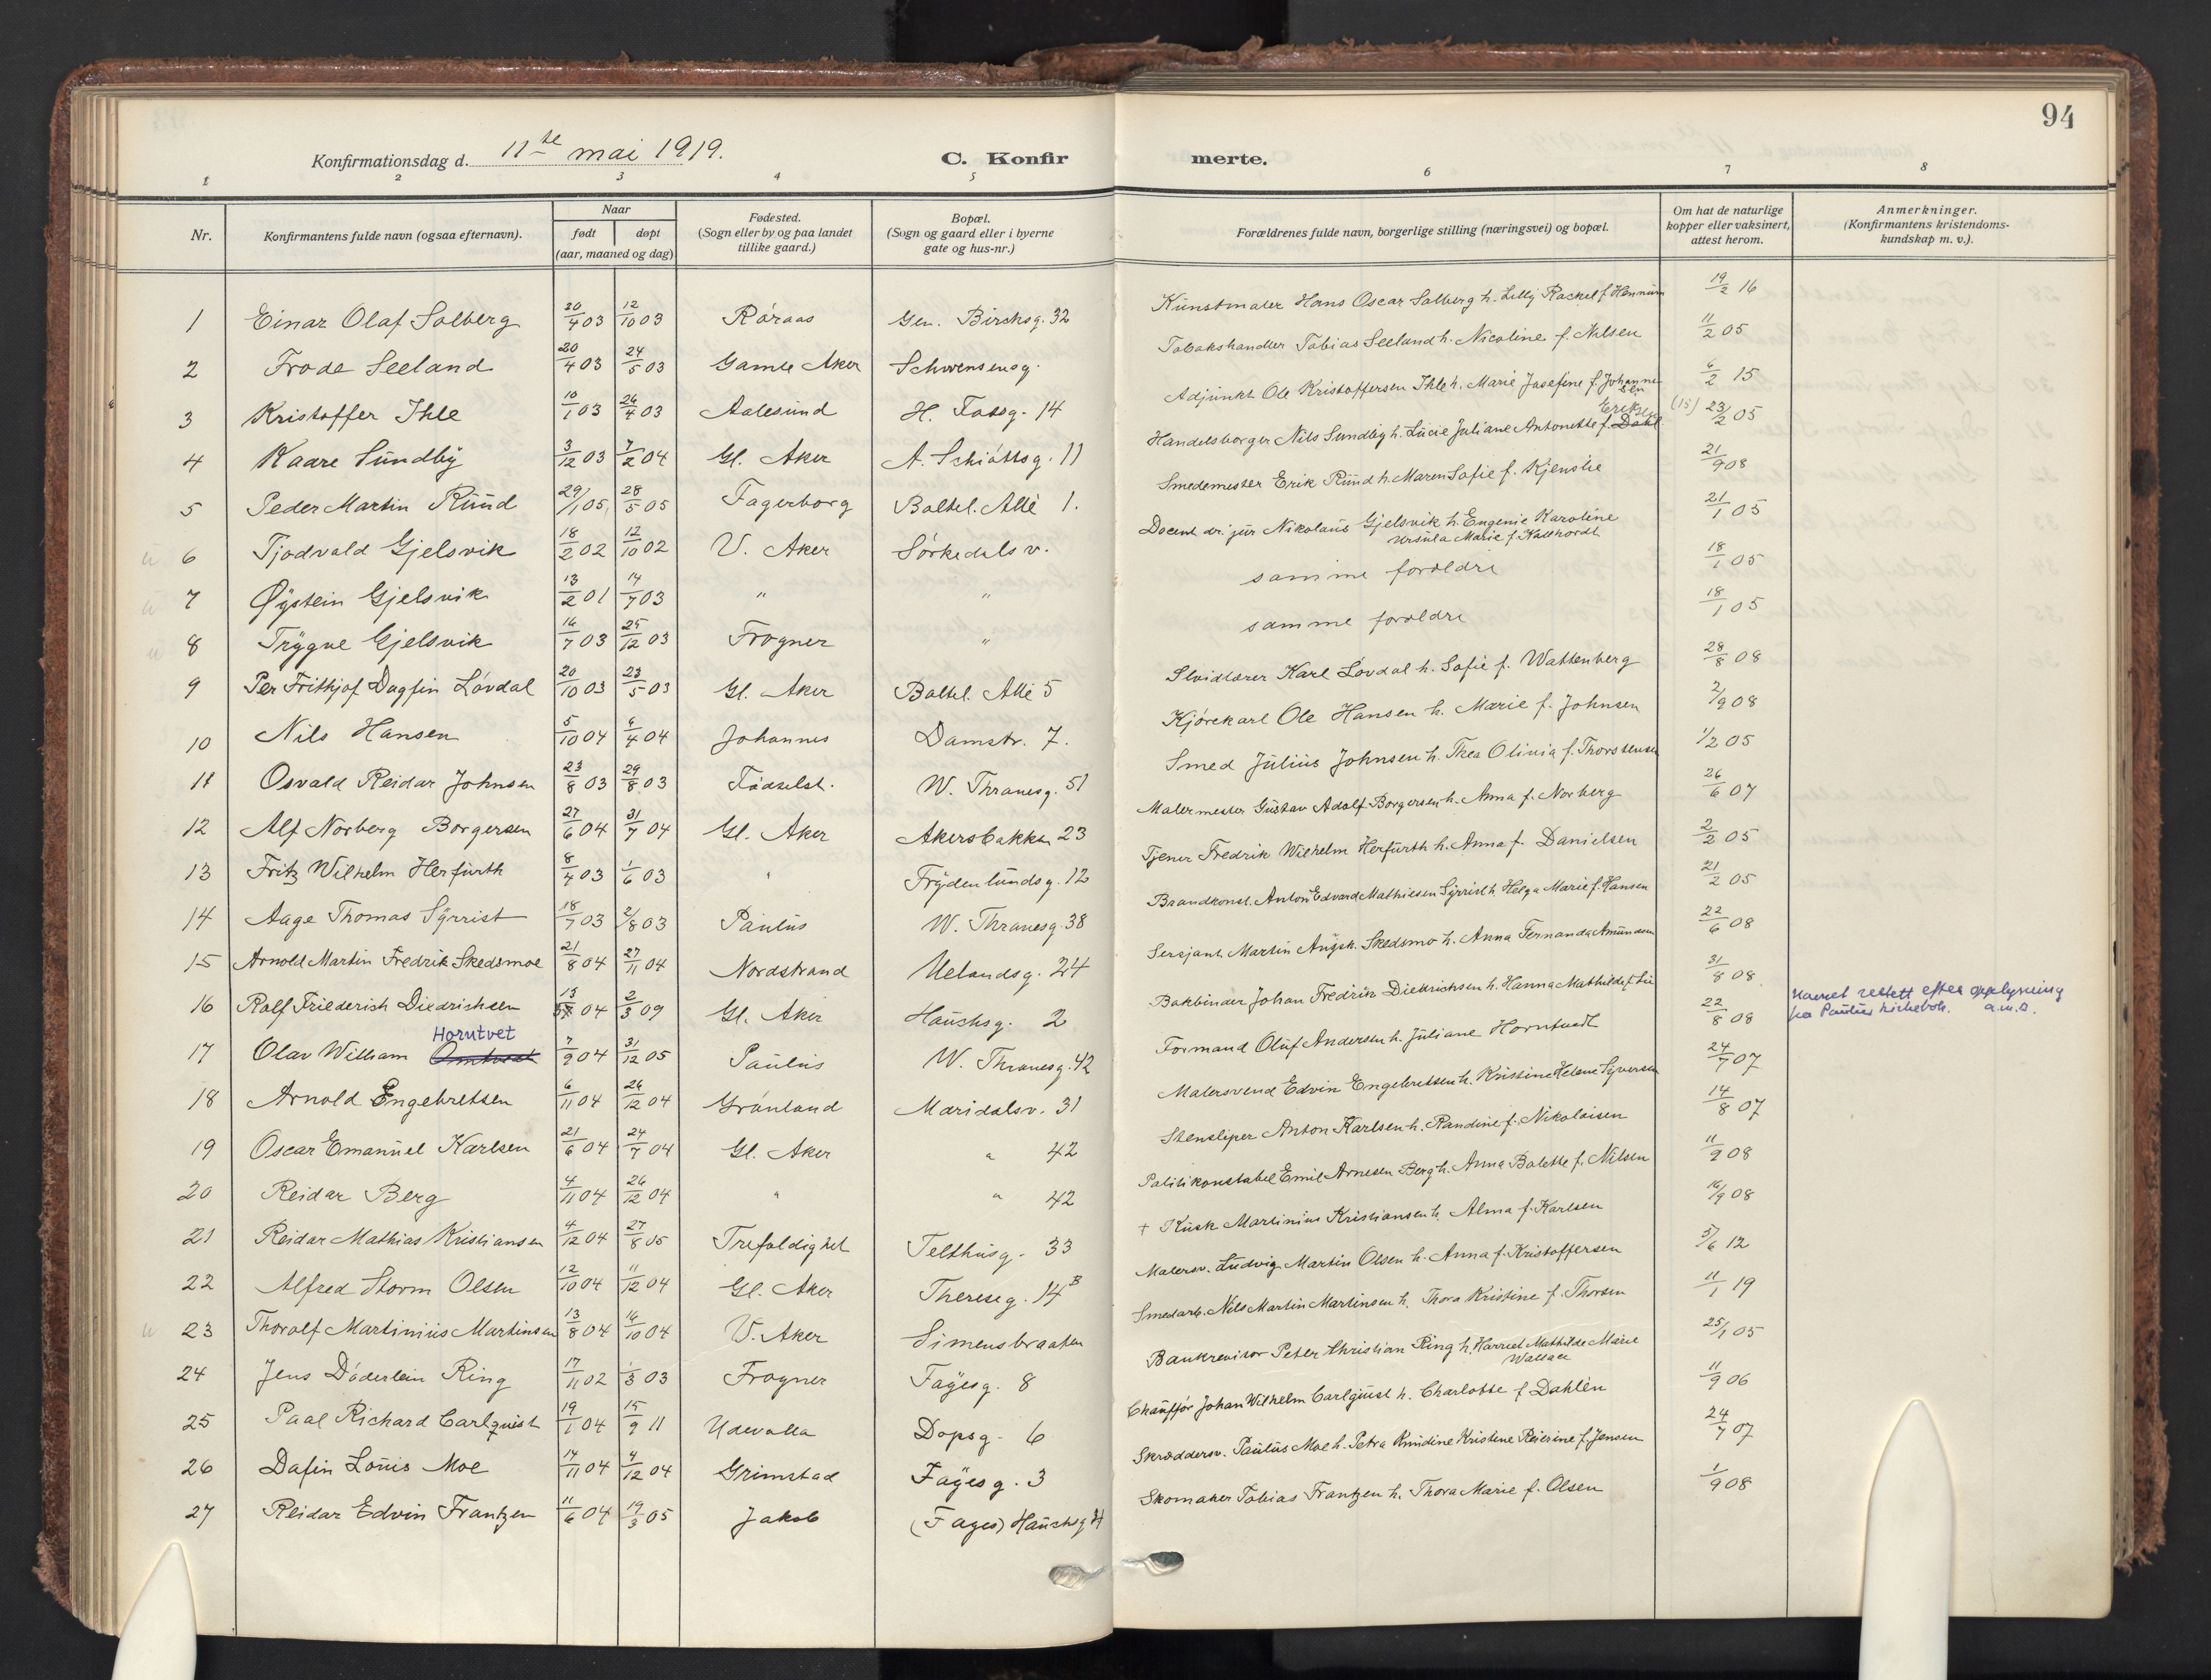 94
Konfirmationsdag d. 11te mai 1919. C. Konfirmerte.
1 2 3 4 5 6 7 8
Nr. Konfirmantens fulde navn (ogsaa efternavn). Naar født døpt (aar, maaned og dag) Fødested. (Sogn eller by og paa landet tillike gaard.) Bopæl. (Sogn og gaard eller i byerne gate og hus-nr.) Forældrenes fulde navn, borgerlige stilling (næringsvei) og bopæl. Om hat de naturlige kopper eller vaksinert, attest herom. Anmerkninger. (Konfirmantens kristendomskundskap m. v.).
1 Einar Olaf Solberg 20/4 03 12/10 03 Røraas Gen. Birchsg. 32 Kunstmaler Hans Oscar Solberg h. Lilly Rackel f. Hennum 19/2 16
2 Frode Seeland 20/4 03 24/5 03 Gamle Aker Schwensensg. Tobakshandler Tobias Seeland h. Nicoline f. Nilsen 11/2 05
3 Kristoffer Ihle 10/1 03 26/4 03 Aalesund H. Fossg. 14 Adjunkt Ole Kristoffersen Ihle h. Marie Josefine f. Johannesen 6/2 15
4 Kaare Sundby 3/12 03 7/2 04 Gl. Aker A. Schiøttsg. 11 Handelsborger Nils Sundby h. Lucie Juliane Antonette f. Dahl Eriksen (15) 23/2 05
5 Peder Martin Ruud 29/1 05 28/5 05 Fagerborg Boltel. Allé 1. Smedemester Erik Ruud h. Maren Sofie f. Kjenslie 21/9 08
6 Tjodvald Gjelsvik 18/2 02 12/10 02 V. Aker Sørkedalsv. Docent dr. jur Nikolaus Gjelsvik h. Eugenie Karoline Ursula Marie f. Kallhordt 21/1 05
7 Øystein Gjelsvik 13/2 01 14/7 03 " " samme foroldre 18/1 05
8 Trygve Gjelsvik 16/7 03 25/12 03 Frogner " samme foroldre 18/1 05
9 Per Frithjof Dagfin Løvdal 20/10 03 23/5 03 Gl. Aker Boltel. Allé 5 Sløidlærer Karl Løvdal h. Sofie f. Wattenberg 28/8 08
10 Nils Hansen 5/10 04 4/4 04 Johannes Damstr. 7. Kjørekarl Ole Hansen h. Marie f. Johnsen 2/9 08
11 Osvald Reidar Johnsen 23/8 03 29/8 03 Fødselst. W. Thranesg. 51 Smed Julius Johnsen h. Thea Olivia f. Thorstensen 1/2 05
12 Alf Norberg Borgersen 27/6 04 31/7 04 Gl. Aker Akersbakken 23 Malermester Gustav Adolf Borgersen h. Anna f. Norberg 26/6 07
13 Fritz Wilhelm Herfurth 8/4 03 1/6 03 " Frydenlundsg. 12 Tjener Fredrik Wilhelm Herfurth h. Anna f. Danielsen 2/2 05
14 Aage Thomas Syrrist 18/7 03 2/8 03 Paulus W. Thranesg. 38 Brandkonst. Anton Edvard Mathiesen Syrrist h. Helga Marie f. Hansen 21/2 05
15 Arnold Martin Fredrik Skedsmoe 21/8 04 27/11 04 Nordstrand Uelandsg. 24 Sersjant Martin August Skedsmo h. Anna Fernanda Amundsen 22/6 08
16 Rolf Friederich Diedrichsen 13/ 04 2/3 09 Gl. Aker Hauchsg. 2 Bokbinder Johan Fredrik Diedrichsen h. Hanna Mathilde f. Lie 31/8 08
17 Olav William Horntvet 7/9 04 31/12 05 Paulus W. Thranesg. 42 Formand Oluf Andersen h. Juliane Horntvedt 22/8 08 Navnet rettett efter opplysning fra Paulus kirkebok. a.m.s.
18 Arnold Engebretsen 6/11 04 26/12 04 Grønland Maridalsv. 31 Malersvend Edvin Engebretsen h. Kristine Helene Syversen 24/7 07
19 Oscar Emanuel Karlsen 21/6 04 24/7 04 Gl. Aker " 42 Stensliper Anton Karlsen h. Randine f. Nikolaisen 14/8 07
20 Reidar Berg 4/11 04 26/12 04 " " 42 Politikonstabel Emil Arnesen Berg h. Anna Bolette f. Nilsen 11/9 08
21 Reidar Mathias Kristiansen 4/12 04 27/8 05 Trefoldighet Telthusg. 33 + Kusk Martinius Kristiansen h. Alma f. Karlsen 16/9 08
22 Alfred Storm Olsen 12/10 04 11/12 04 Gl. Aker Thereseg. 14B Malersv. Ludvig Martin Olsen h. Anna f. Kristoffersen 5/6 12
23 Thoralf Martinius Martinsen 13/8 04 16/10 04 V. Aker Simensbraaten Smedarb. Nils Martin Martinsen h. Thora Kristine f. Thorsen 11/1 19
24 Jens Døderlein Ring 17/11 02 1/3 03 Frogner Fayesg. 8 Bankrevisor Peter Christian Ring h. Harriet Mathilde Marie Wallace 25/1 05
25 Paal Richard Carlquist 19/1 04 15/9 11 Udevalla Dopsg. 6 Chauffør Johan Wilhelm Carlquist h. Charlotte f. Dahlèn 11/9 06
26 Dafin Louis Moe 14/11 04 4/12 04 Grimstad Fayesg. 3 Skræddersv. Paulus Moe h. Petra Knudine Kristine Reierine f. Jensen 24/7 07
27 Reidar Edvin Frantzen 11/6 04 19/3 05 Jakob (Fayes) Hauchsg. Skomaker Tobias Frantzen h. Thora Marie f. Olsen 1/9 08